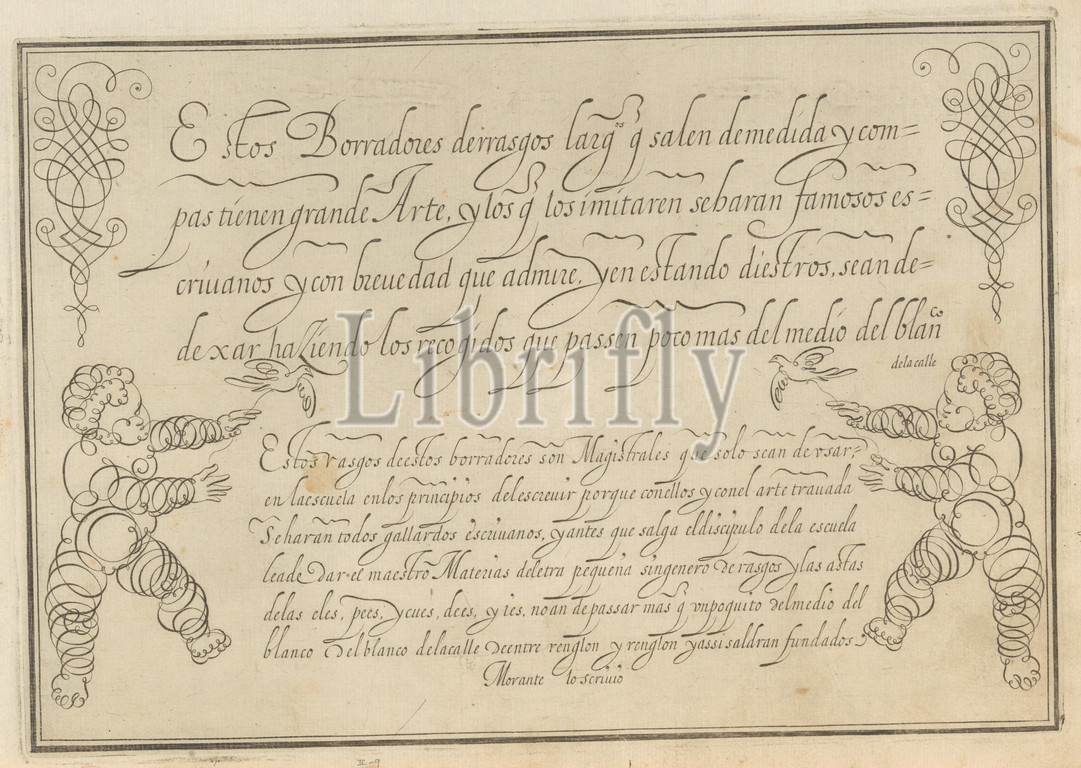 Estos Borradores derrasgos largos q̃ salen demedida y com=
pas tienen grande Arte, y los q̃ los imitaren seharan famosos es=
criuanos y con breuedad que admire, y en estando diestros, sean de=
dexar haziendo los recogidos que passen poco mas del medio del blanco
dela calle
Librifly
Estos rasgos deestos borradores son Magistrales que solo sean de vsar
en laescuela enlos principios delescreuir porque conellos y conel arte trauada
Seharan todos gallardos escriuanos, y antes que salga eldiscipulo dela escuela
leade Dar el maestro Materias deletra pequeña singenero de rasgos y las astas
delas eles, pees, y cues, dees, y ies, noan de passar mas q̃ vnpoquito delmedio del
blanco delblanco delacalle deentre renglon y renglon y assi saldran fundados
Morante lo scriuio
III-9